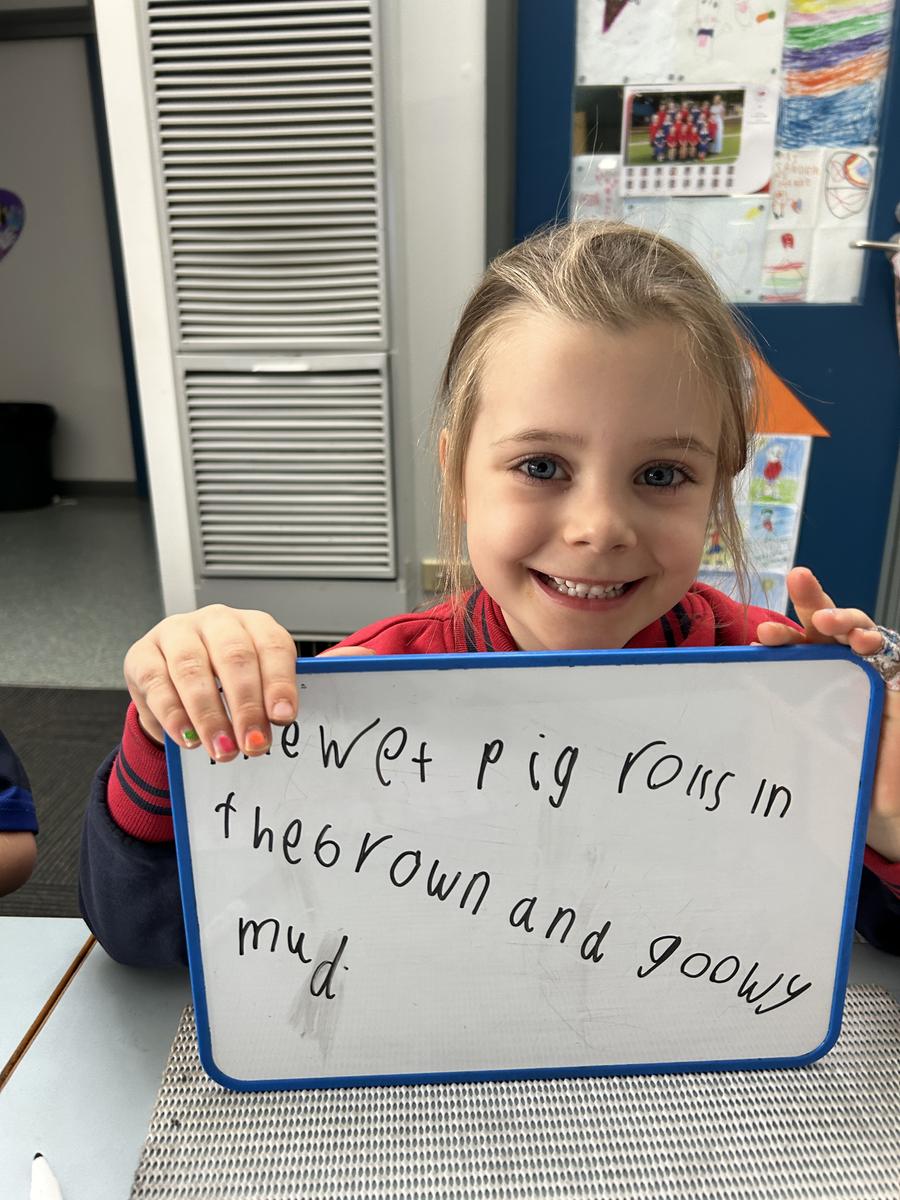 The wet pig rolls in
the brown and goowy
mud.